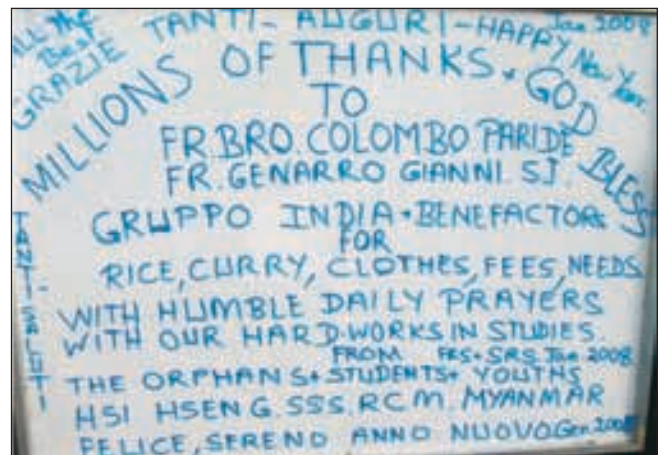 All the Best
GRAZIE
TANTI - AUGURI - HAPPY New Year.
Jan 2008
MILLIONS OF THANKS. GOD BLESS
TO
FR.BRO.COLOMBO PARIDE
FR. GENARRO GIANNI. SJ.
TANTI-SALUTI
GRUPPO INDIA + BENEFACTORS
FOR
RICE, CURRY, CLOTHES, FEES, NEEDS
WITH HUMBLE DAILY PRAYERS
WITH OUR HARD-WORKS IN STUDIES.
FROM FRS+SRS Jan 2008
THE ORPHANS + STUDENTS + YOUTHS
HSI HSENG. SSS. RCM. MYANMAR
FELICE, SERENO ANNO NUOVO Gen 2008